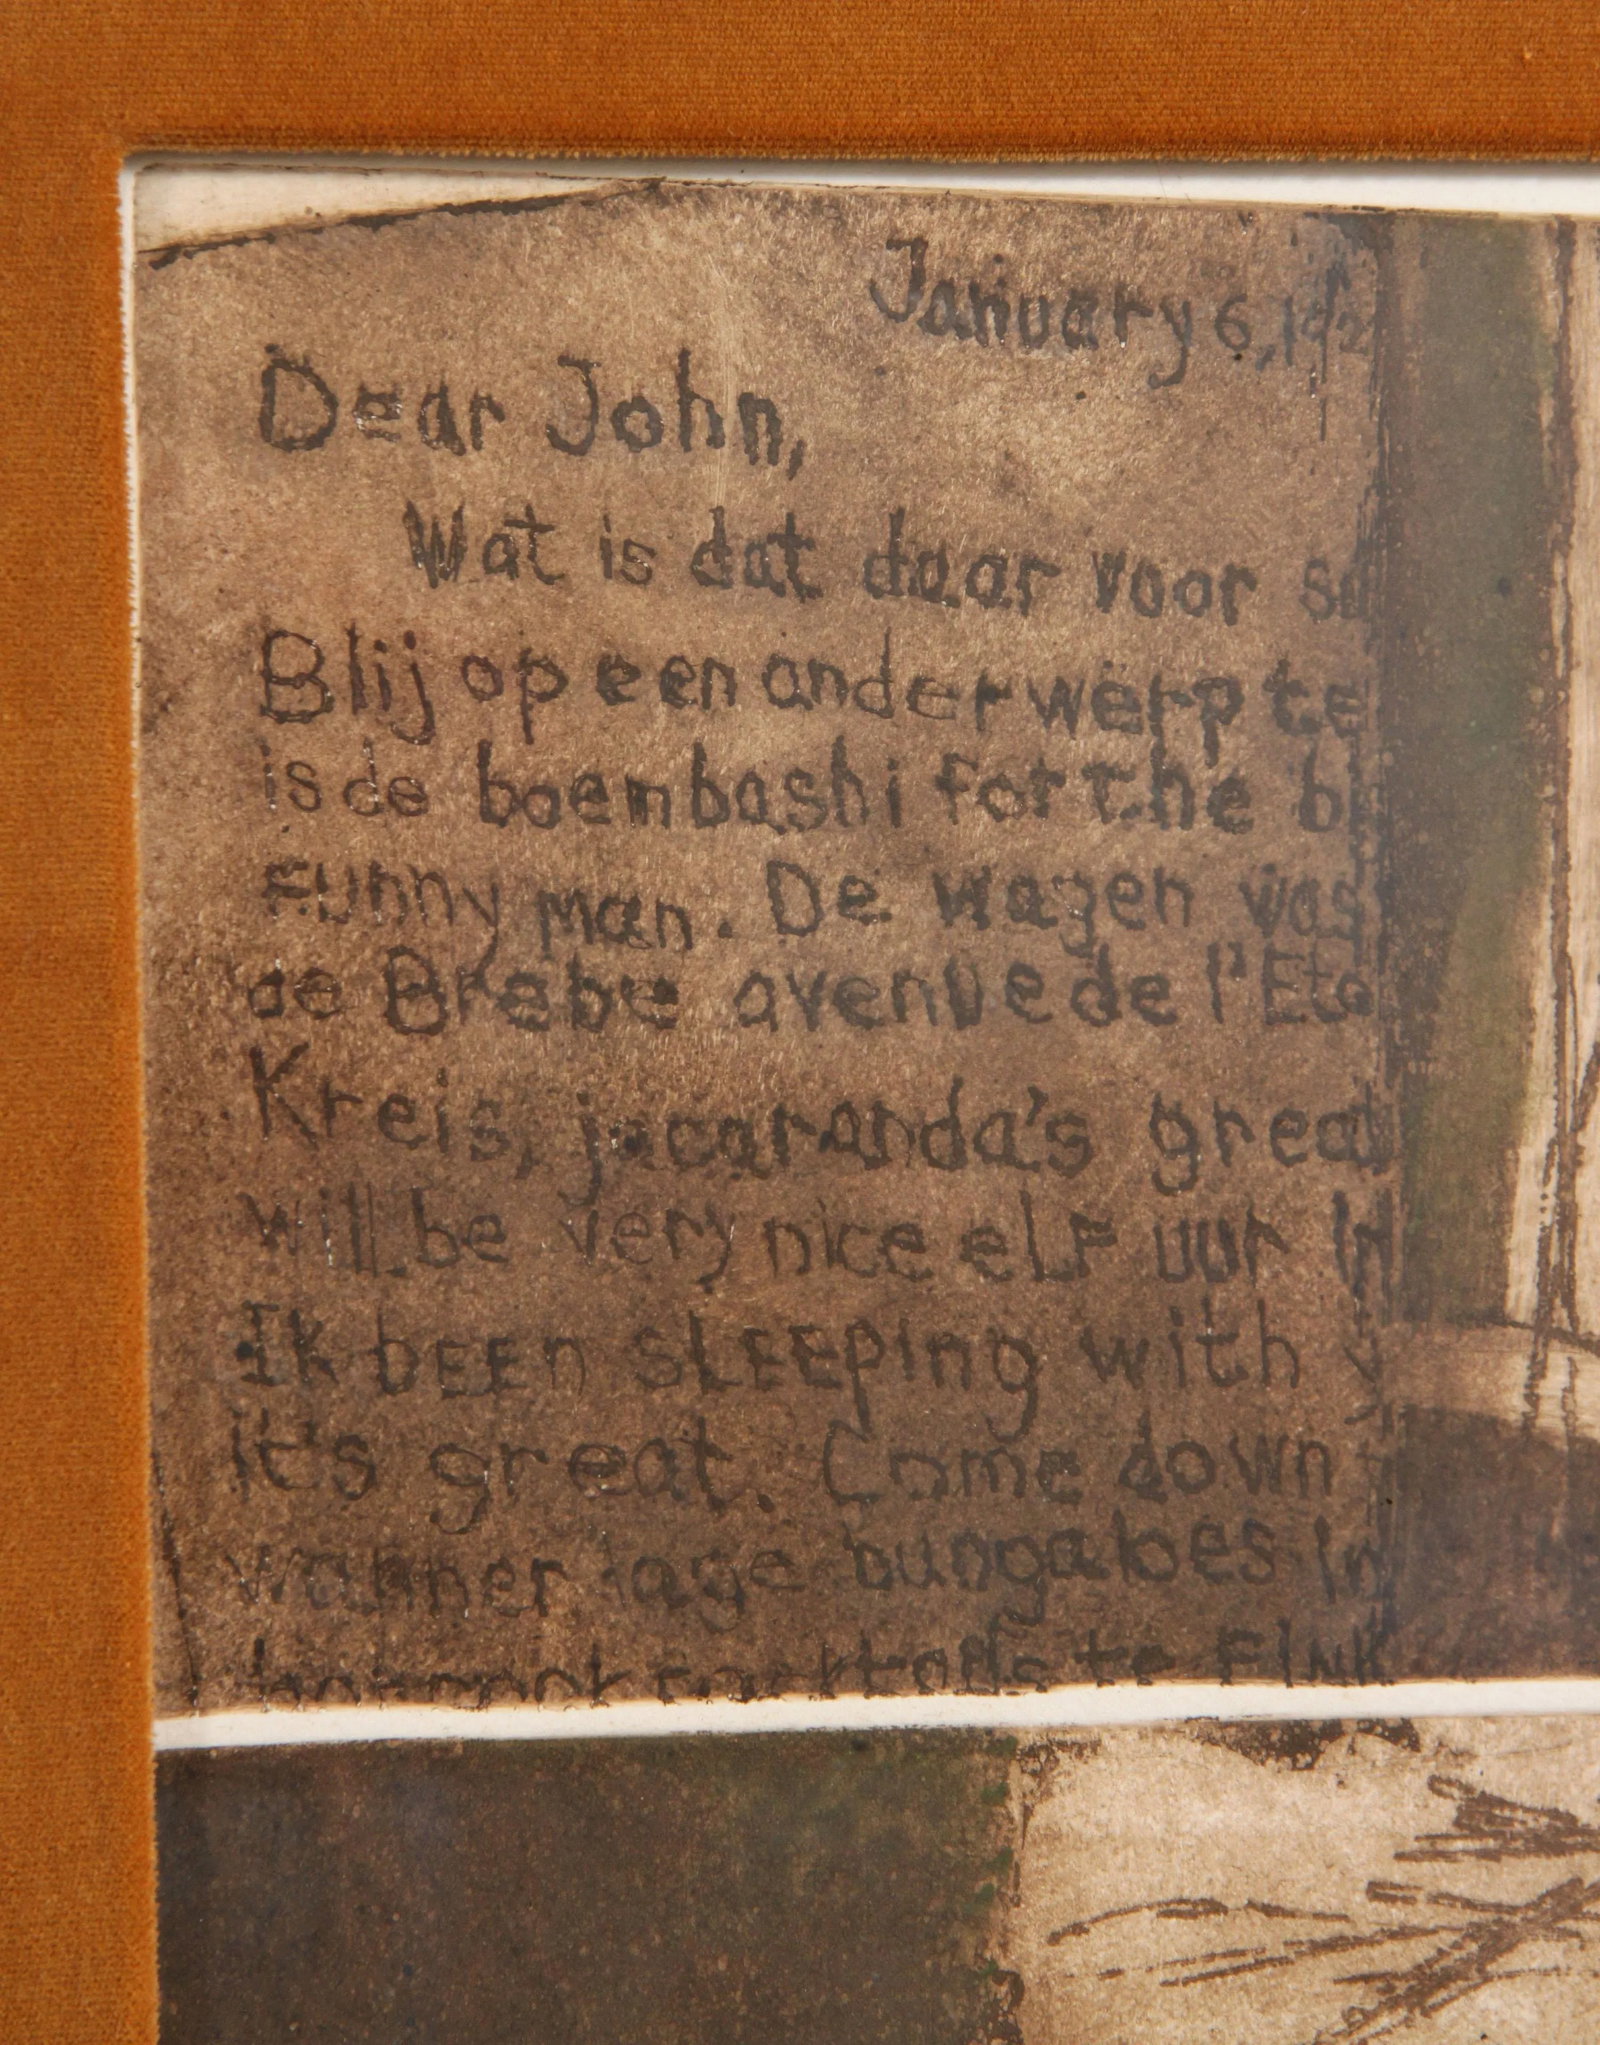 January 6, 19
Dear John,
Wat is dat daar voor
Blij op een anderwerp te
is de boembashi for the
Funny man. De wagen was
de Brebe avenue de l'Eto
Kreis, jacaranda's great
will be very nice elf uur In
Ik been sleeping with
it's great. Come down
wanner lage bungaloes In